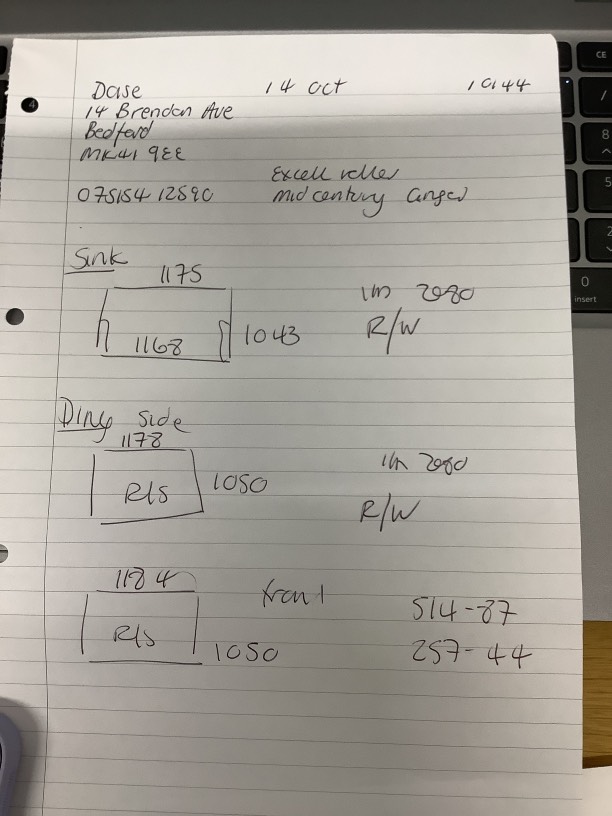 Dase 14 Oct 10144
14 Brendon Ave
Bedford
MK41 9EE
075154 12590
Excell roller
mid century
Sink
1175
1168 1043
Un 2080
R/W
Diny side
1178
R/S 1050
Un 2080
R/W
1184
front
R/S 1050
514-87
257-44
CE
/
8
5
2
0
insert